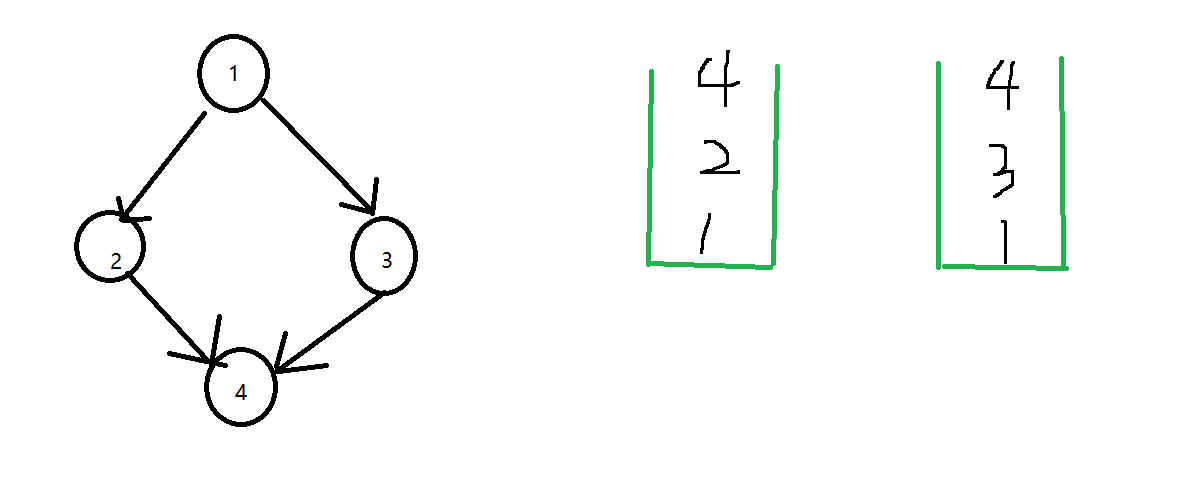 1
2
3
4
4
2
1
4
3
1